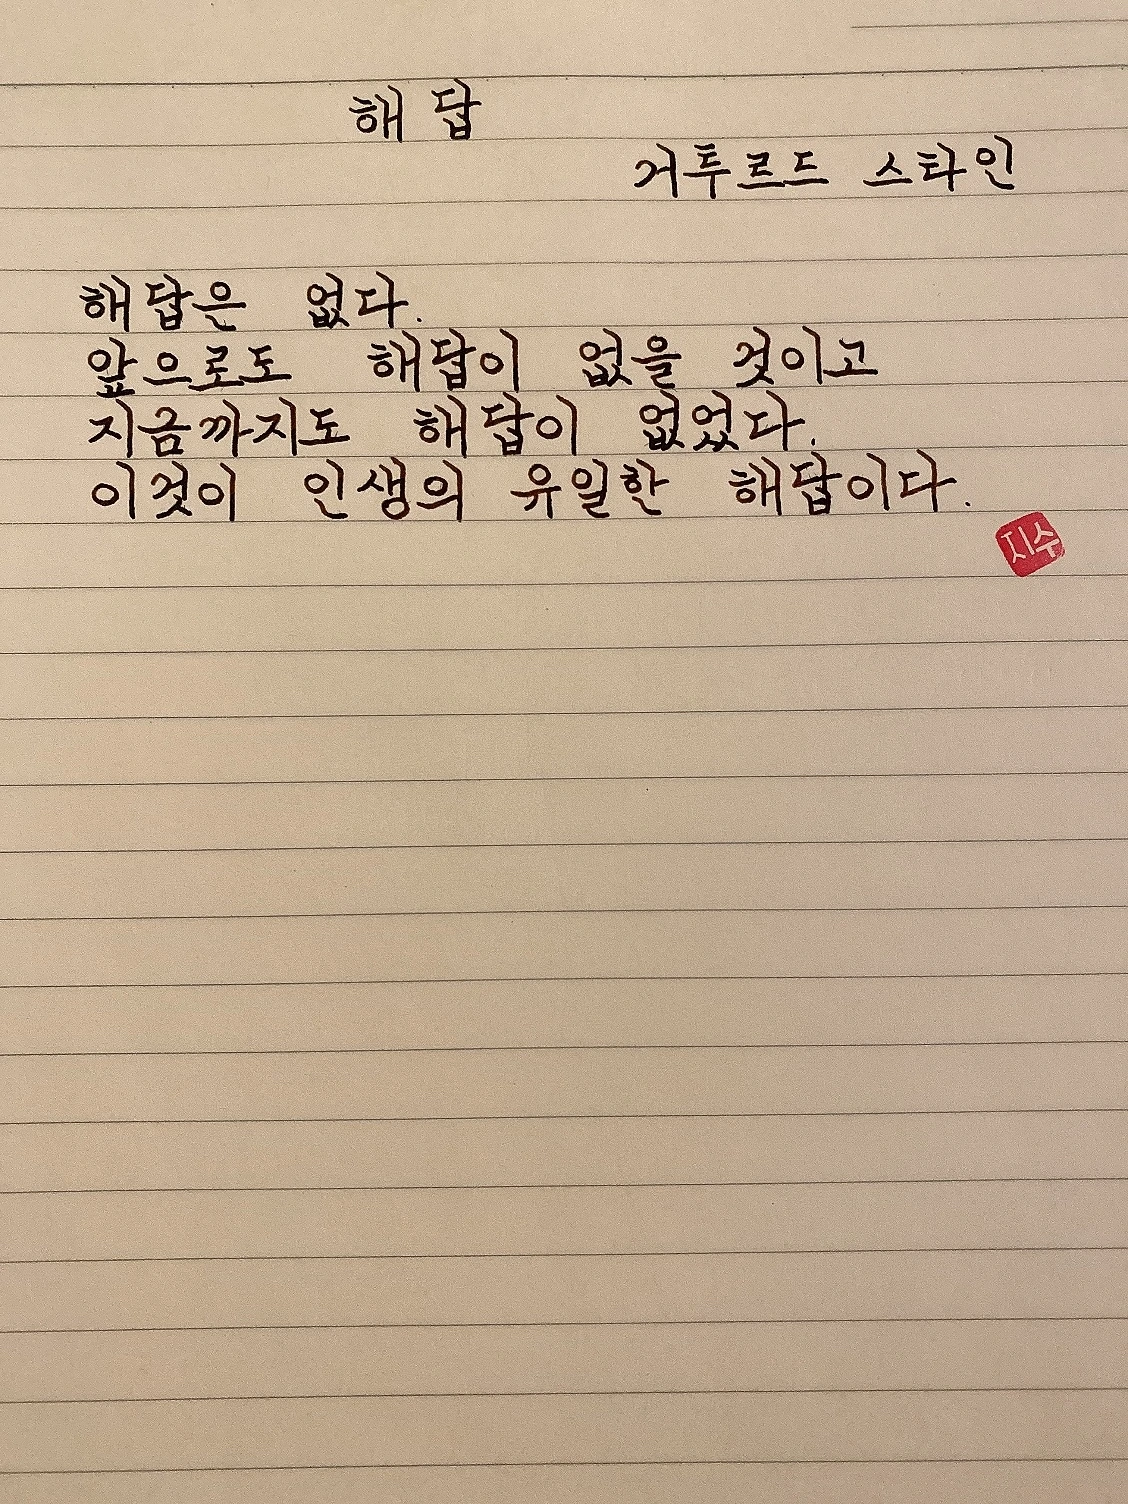 해답
거투르드 스타인
해답은 없다.
앞으로도 해답이 없을 것이고
지금까지도 해답이 없었다.
이것이 인생의 유일한 해답이다.
지수